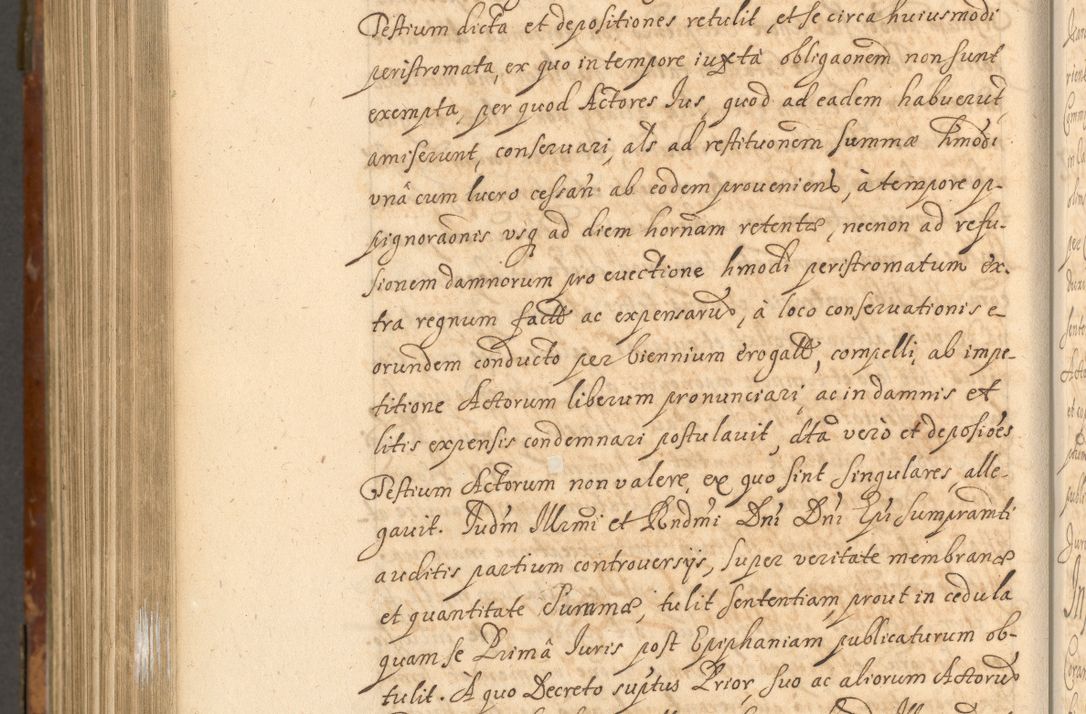 Testium dicta et depositiones retulit, et se circa huiusmodi
peristromata, ex quo in tempore iuxta obligaonem non sunt
exempta, per quod Actores Ius, quod ad eadem habuerut
amiserunt, conseruari, als ad restituonem summæ hmodi
vnâ cum lucro cessan: ab eodem prouenien, à tempore op-
pignoraonis vsq ad diem hornam retentæ, necnon ad refu-
sionem damnorum pro euectione hmodi peristromatum ex-
tra regnum fact ac expensaru, à loco conseruationis e-
orundem conducto per biennium erogat, compelli, ab impe-
titione Actorum liberum pronunciari, ac in damnis et
litis expensis condemnari postulauit, dta verò et deposioes
Testium Actorum non valere, ex quo sint singulares, alle-
gauit. Iudm Illrmi et Rndmi Dni Dni Epi sumpramti
auditis partium controuersijs, super veritate membranæ
et quantitate summæ, tulit sententiam, prout in cedula
quam se Primâ Iuris post Epiphaniam publicaturum ob-
tulit. A quo Decreto suptus Prior, suo ac aliorum Actoru